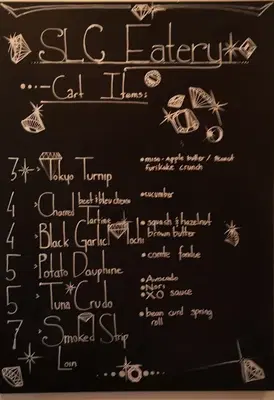 SLC Eatery
Cart Items:
3 Tokyo Turnip • miso-apple butter / Peanut
furikake crunch
4 Charred beet & bleu cheese • cucumber
Tartine
4 Black Garlic Mochi • squash & hazelnut
brown butter
5 Potato Dauphine • comte fondue
5 Tuna Crudo • Avocado
• Nori
• XO sauce
7 Smoked Strip • bean curd spring
Loin roll